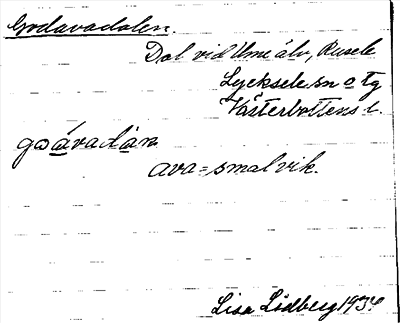 Godavadalen.
Dal vid Ume älv, Rusele
Lycksele sn o tg
Västerbottens l.
ava = smal vik.
Lisa Lidberg